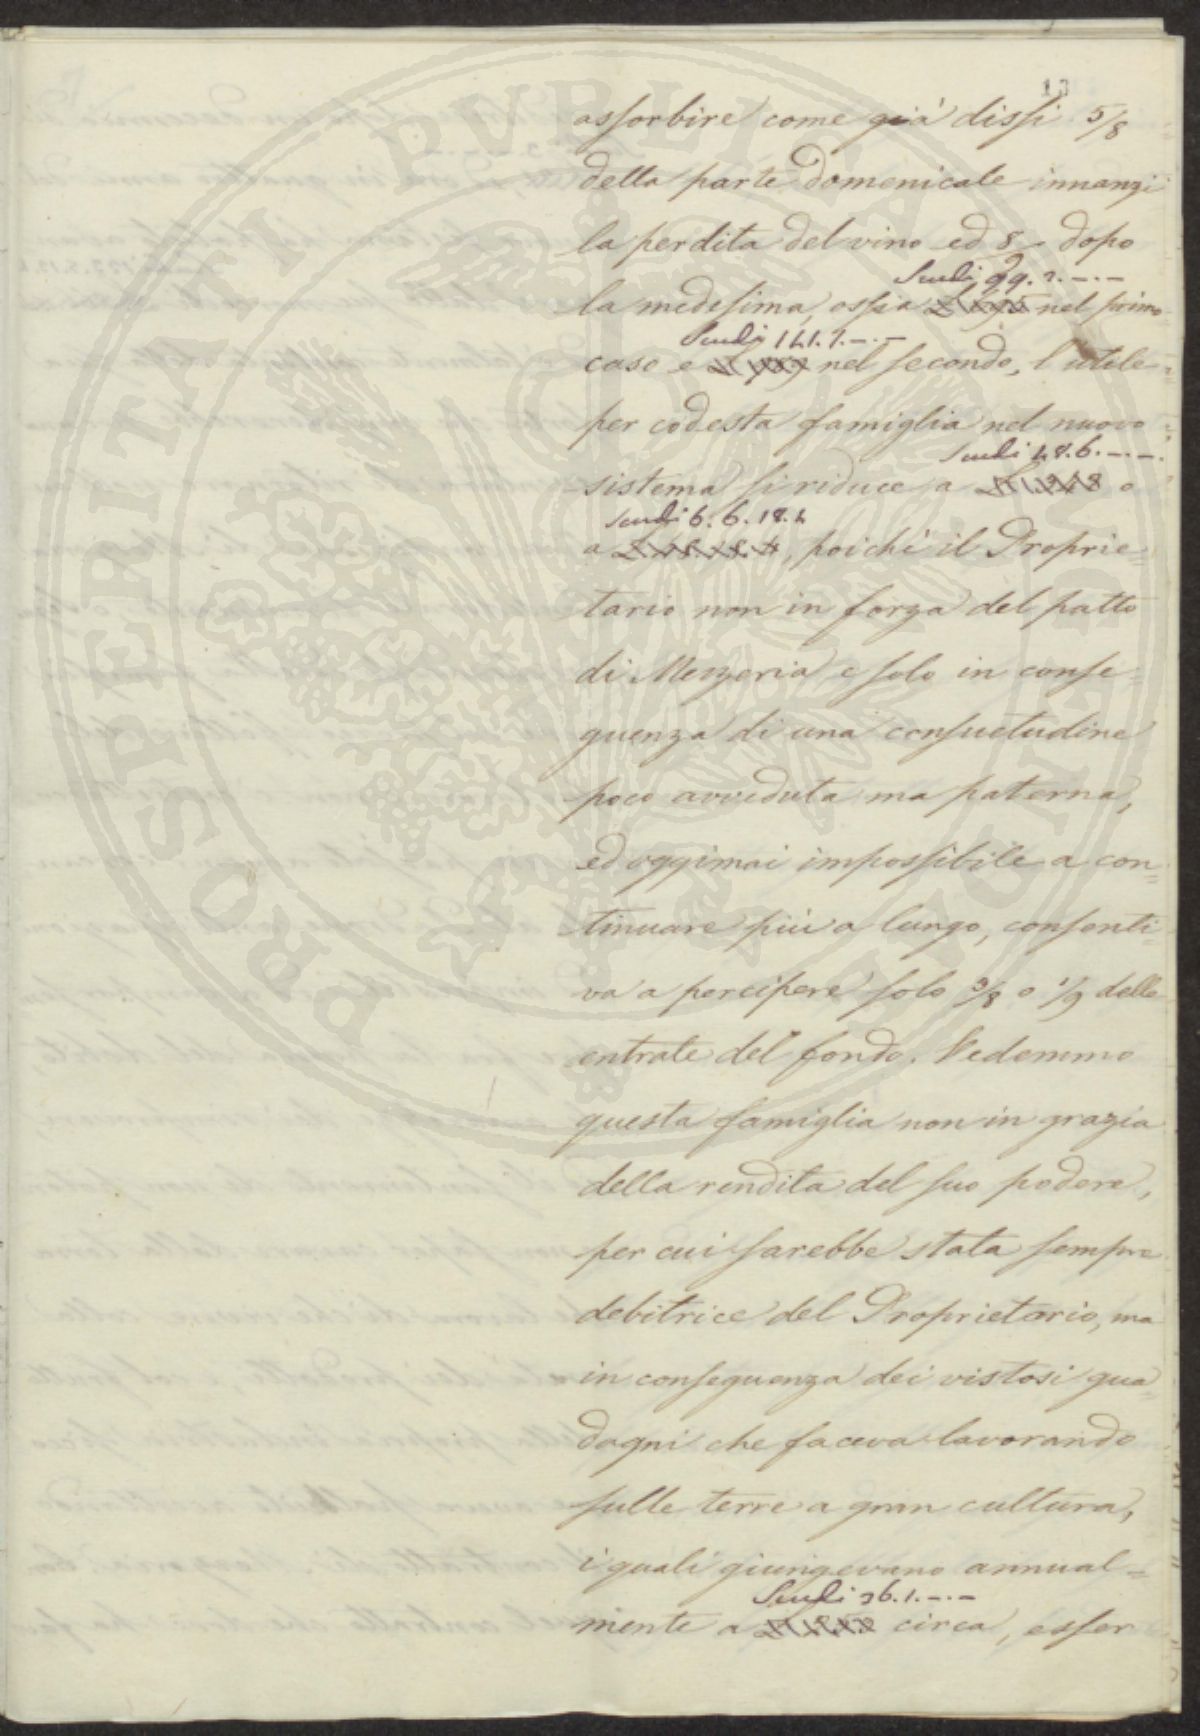 13
assorbire come già dissi 5/8
della parte domenicale innanzi
la perdita del vino ed 8/9 dopo
Scudi 99.2.—.—
la medesima, ossia nel primo
Scudi 141.1.—.—
caso e nel secondo, l'utile
per codesta famiglia nel nuovo
Scudi 48.6.—.—.
sistema si riduce a o
Scudi 6.6.18.4
a , poichè il Proprie=
tario non in forza del patto
di Mezzeria e solo in conse=
guenza di una consuetudine
poco avveduta ma paterna,
ed oggimai impossibile a con=
tinuare più a lungo, consenti=
va a percipere solo 3/8 o 1/9 delle
entrate del fondo. Vedemmo
questa famiglia non in grazia
della rendita del suo podere,
per cui sarebbe stata sempre
debitrice del Proprietario, ma
in conseguenza dei vistosi gua=
dagni che faceva lavorando
sulle terre a gran cultura,
i quali giungevano annual=
Scudi 36.1.—.—
mente a circa, esser
PROSPERITATI PUBLICAE AUGENDAE